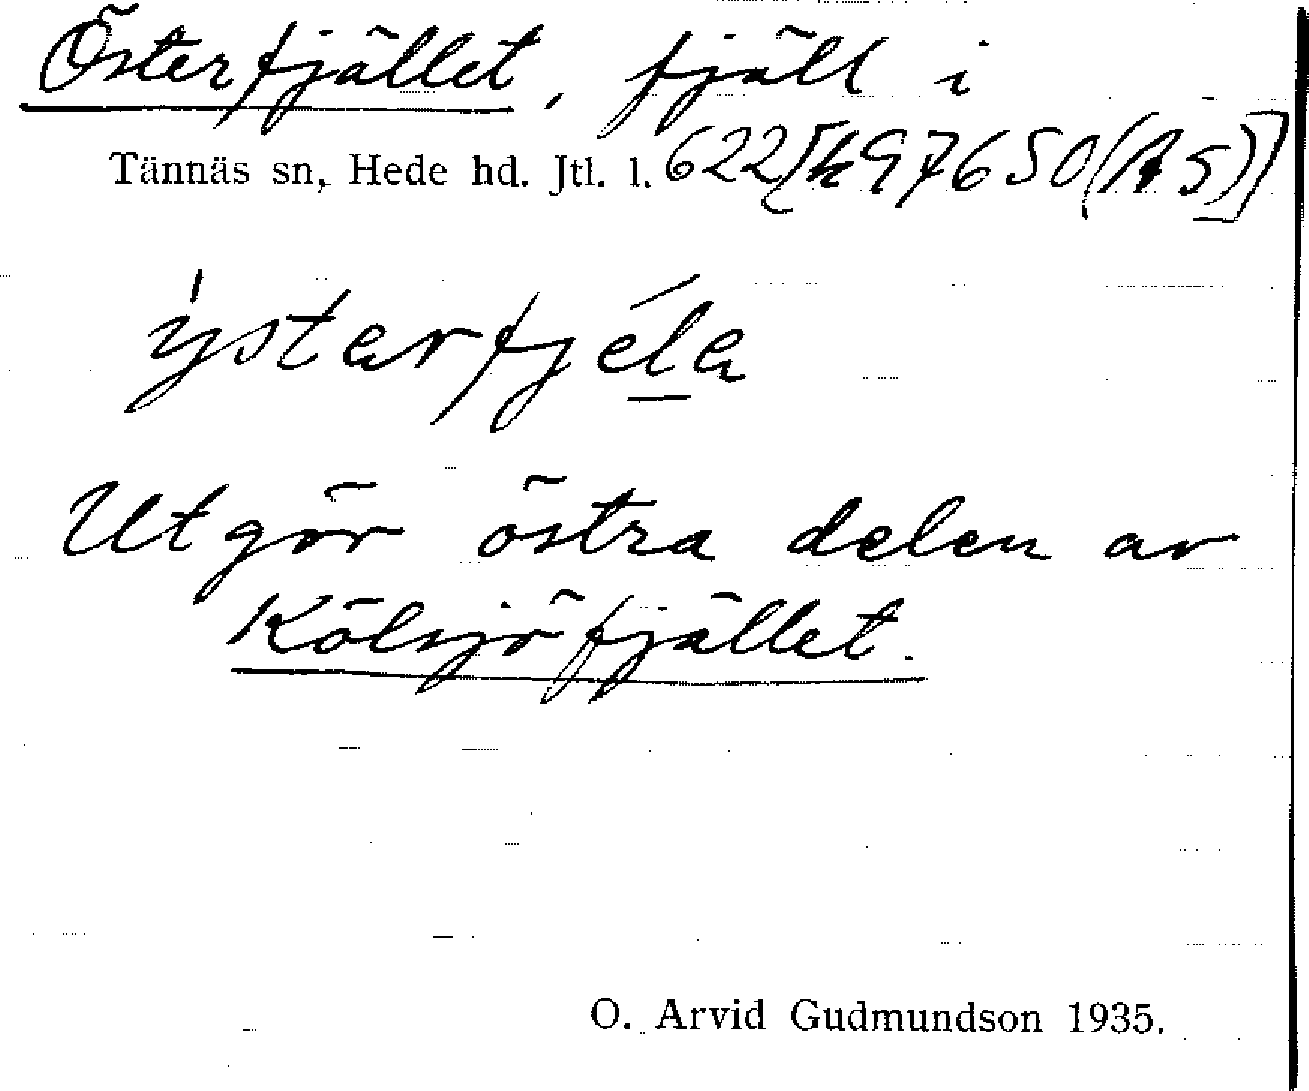 Österfjället, fjäll i
Tännäs sn, Hede hd. Jtl. l. 622[k97650(A5)]
ýstarfjéla
Utgör östra delen av
Kölsjöfjället.
O. Arvid Gudmundson 1935.